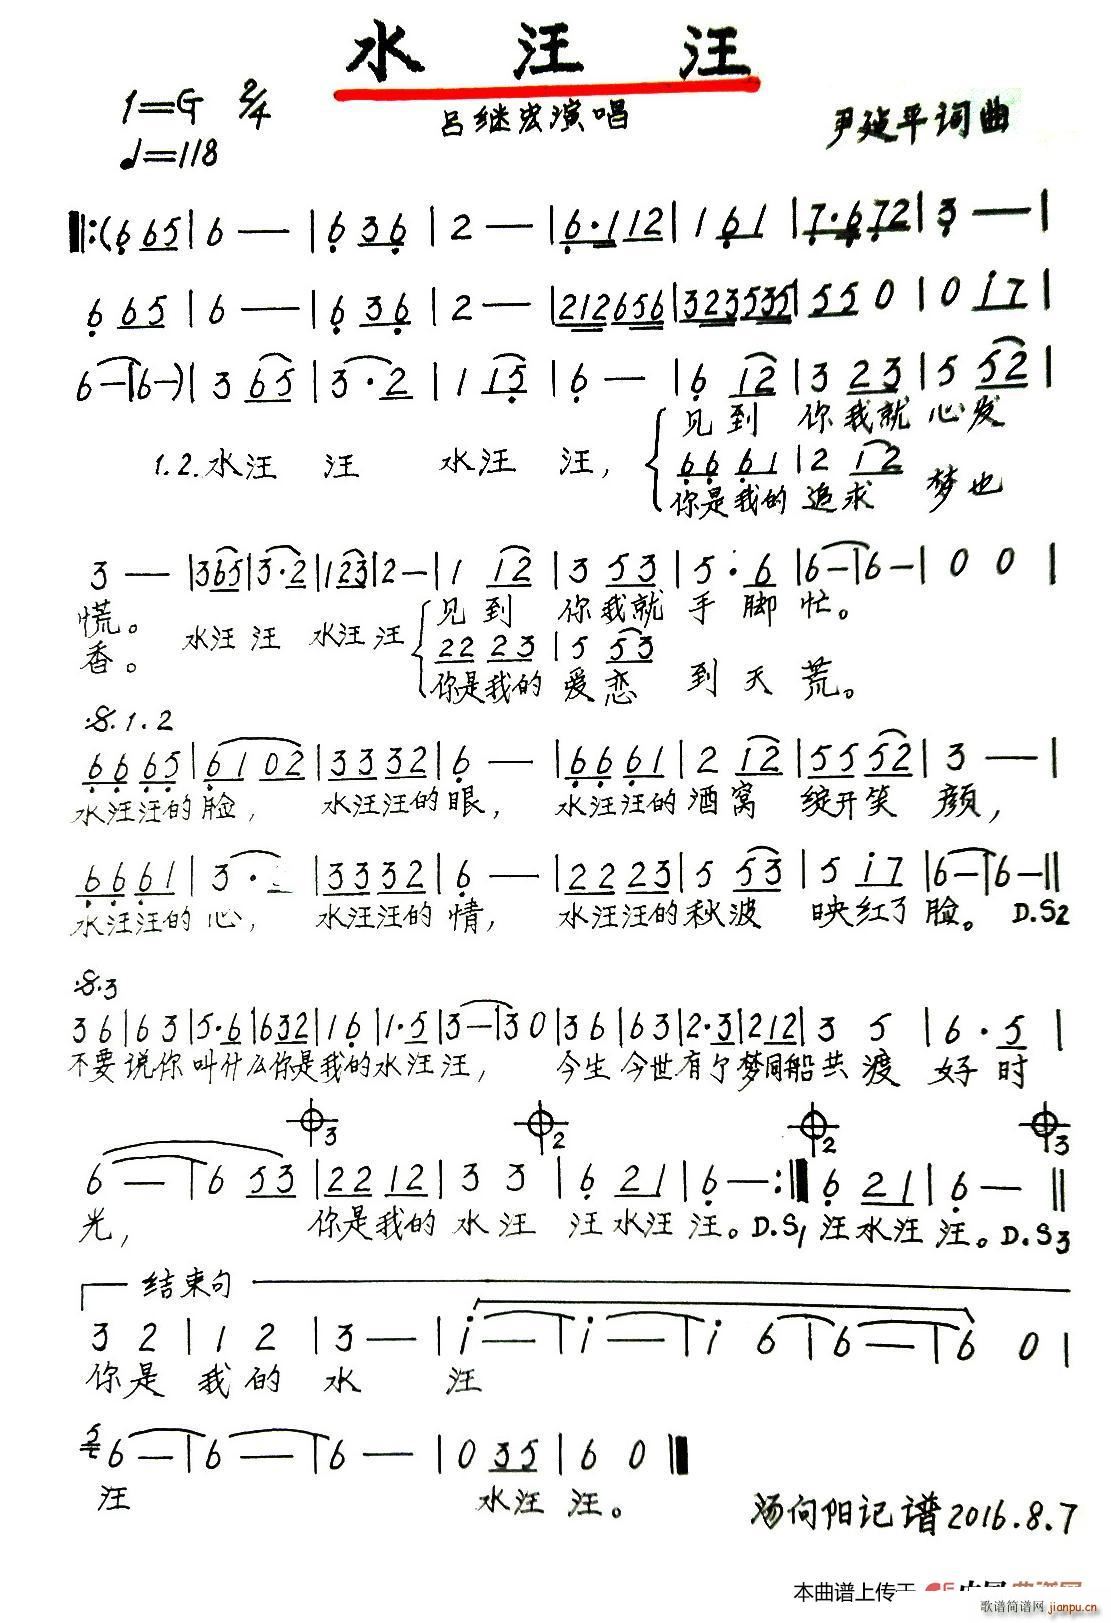 水 汪 汪
1=G 2/4
吕继宏演唱
尹建平词曲
♩=118
‖:(6 65 | 6 — | 6 36 | 2 — | 6·1 12 | 1 61 | 7·6 72 | 3 — |
6 65 | 6 — | 6 36 | 2 — | 212 656 | 323 535 | 55 0 | 0 i7 |
6 — | 6 —) | 3 65 | 3·2 | 1 15 | 6 — | 6 12 | 3 23 | 5 52 |
见到 你我就 心发
1.2.水汪 汪 水汪 汪,
66 61 | 2 12
你是我的 追求 梦也
3 — | 365 | 3·2 | 123 | 2 — | 1 12 | 3 53 | 5·6 | 6 — | 6 — | 0 0 |
慌。 水汪 汪 水汪 汪 见到 你我就 手 脚 忙。
香。
22 23 | 5 53
你是我的 爱恋 到 天 荒。
:S.1.2
66 65 | 61 02 | 33 32 | 6 — | 66 61 | 2 12 | 55 52 | 3 — |
水汪汪的脸, 水汪汪的眼, 水汪汪的酒窝 绽开笑 颜,
66 61 | 3· | 33 32 | 6 — | 22 23 | 5 53 | 5 i7 | 6 — | 6 — ‖
水汪汪的心, 水汪汪的情, 水汪汪的秋波 映红了脸。 D.S2
:S.3
3 6 | 6 3 | 5·6 | 632 | 1 6 | 1·5 | 3 — | 3 0 | 3 6 | 6 3 | 2·3 | 212 | 3 5 | 6·5 |
不要说你叫什么你是我的水汪汪, 今生今世有尔梦同船共渡 好时
3 2 2 3
6 — | 6 53 | 22 12 | 3 3 | 6 21 | 6 — :‖ 6 21 | 6 — ‖
光, 你是我的水汪 汪水汪 汪。D.S1 汪水汪 汪。D.S3
结束句
3 2 | 1 2 | 3 — | i — | i — | i 6 | 6 — | 6 0 |
你是 我的 水 汪
5 6 — | 6 — | 6 — | 0 35 | 6 0 ‖
汪 水汪 汪。
汤向阳记谱2016.8.7
本曲谱上传于
歌谱简谱网
jianpu.cn